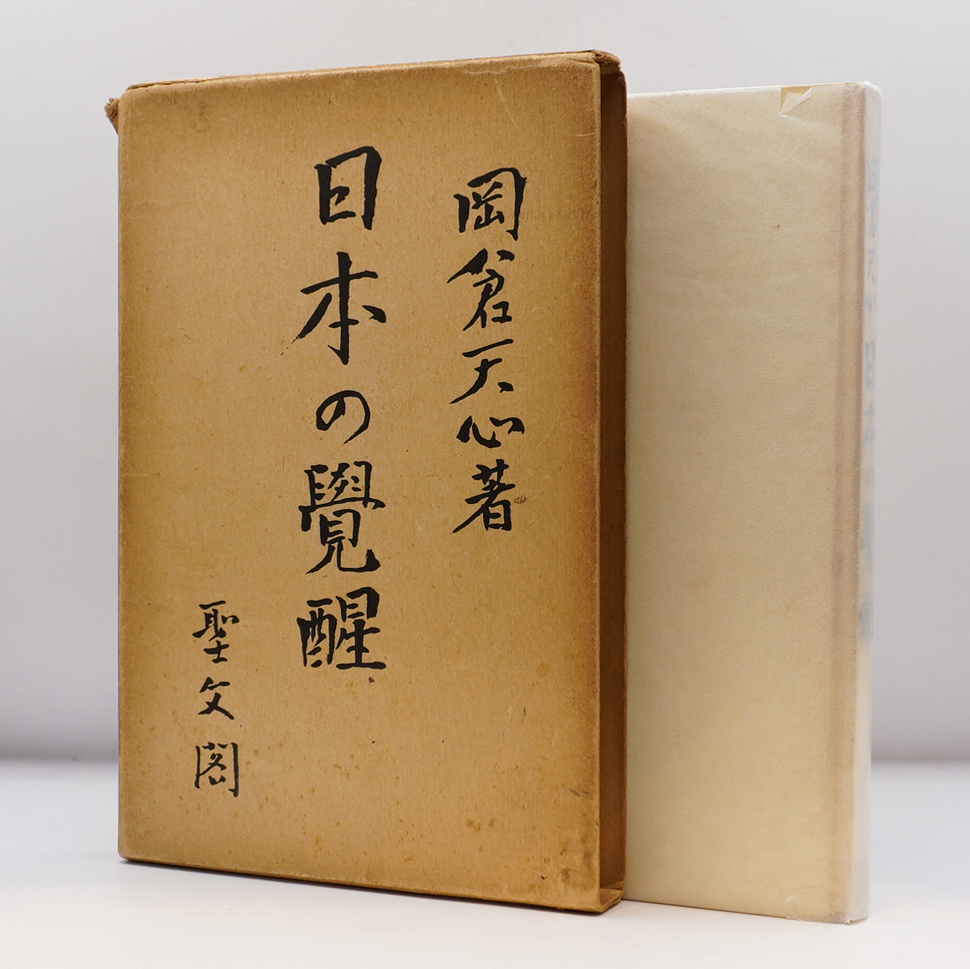 岡倉天心著
日本の覺醒
聖文閣